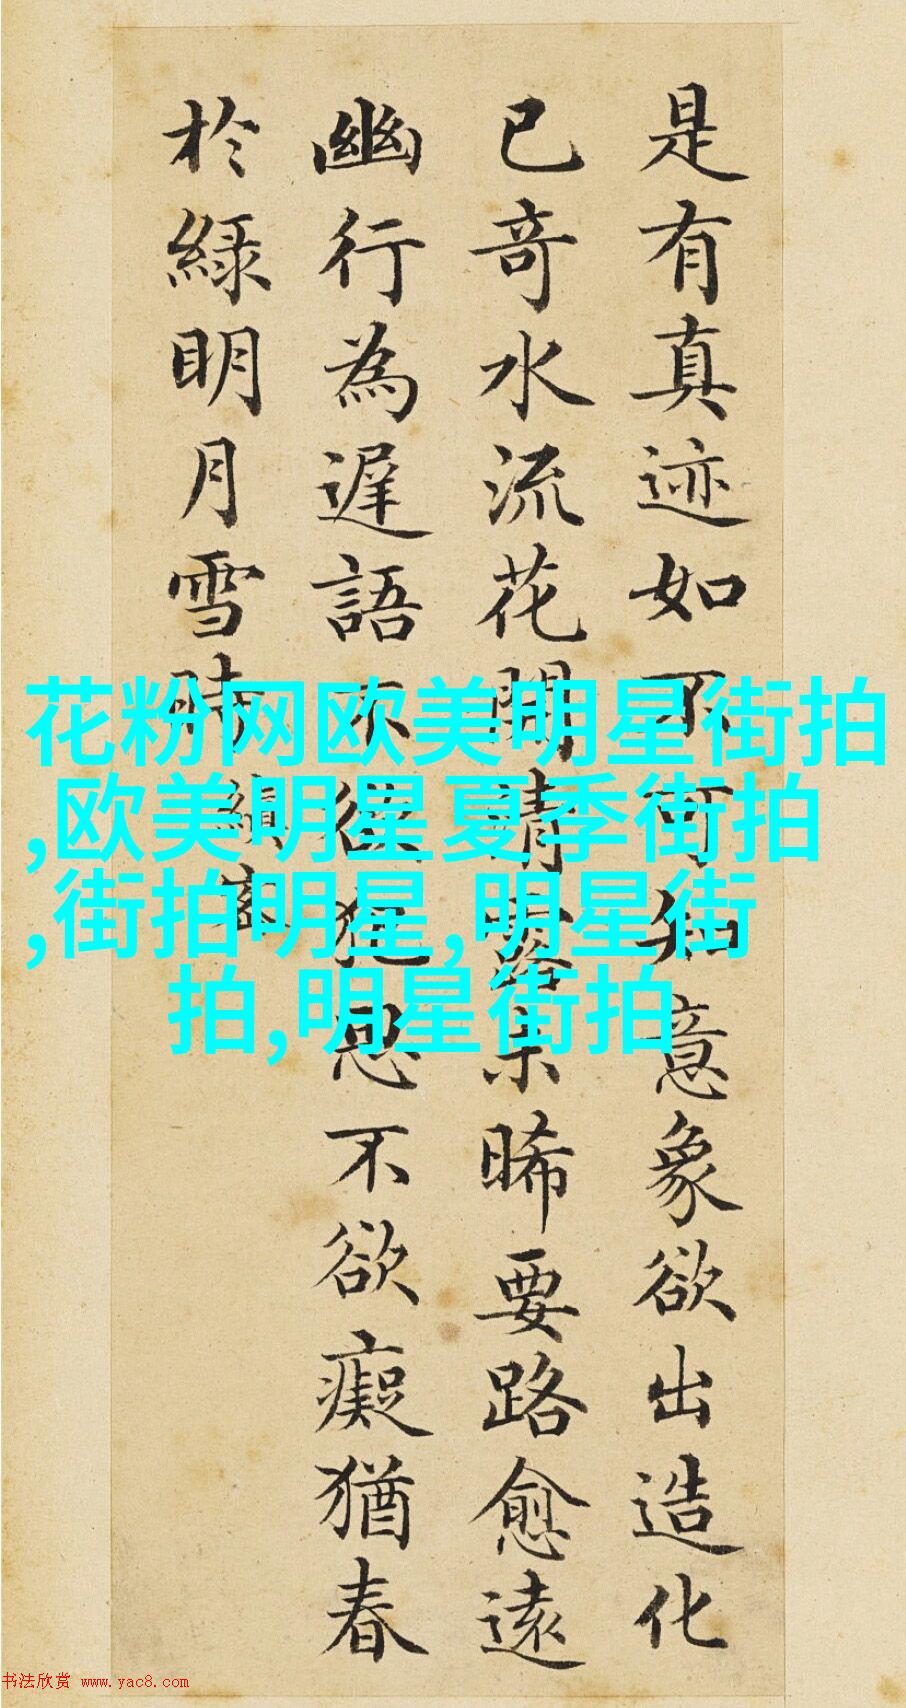 是有真迹如不可知意象欲出造化
已奇水流花開清露未晞要路愈遠
幽行為遲語不欲犯思不欲癡猶春
於綠明月雪時
縝密
花粉网欧美明星街拍
,欧美明星夏季街拍
,街拍明星,明星街
拍,明星街拍
书法欣赏 www.yac8.com